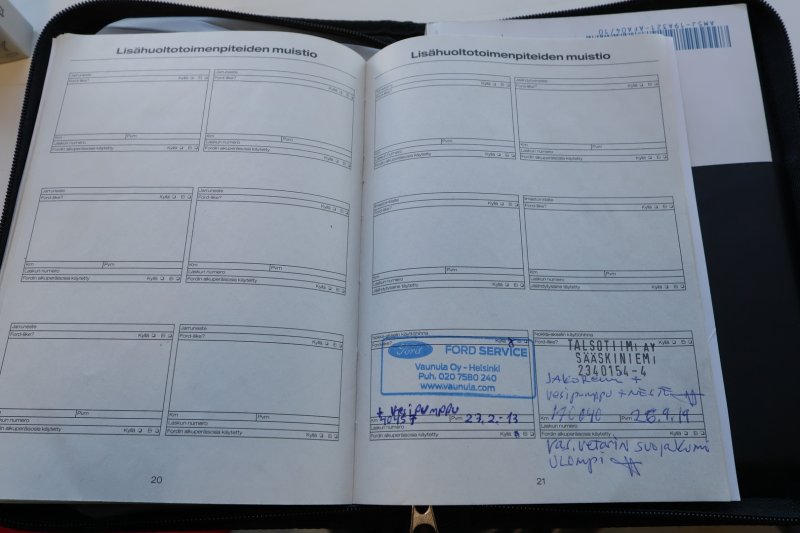 AM5J-19A321-AYA04/10
Lisähuoltotoimenpiteiden muistio
Jarruneste
Ford-liike? Kyllä Ei
Km Pvm
Laskun numero
Fordin alkuperäisosia käytetty Kyllä Ei
Jarruneste
Ford-liike? Kyllä Ei
Km Pvm
Laskun numero
Fordin alkuperäisosia käytetty Kyllä Ei
Jarruneste
Ford-liike? Kyllä Ei
Km Pvm
Laskun numero
Fordin alkuperäisosia käytetty Kyllä Ei
Jarruneste
Ford-liike? Kyllä Ei
Km Pvm
Laskun numero
Fordin alkuperäisosia käytetty Kyllä Ei
Jarruneste
Ford-liike? Kyllä Ei
Km Pvm
Laskun numero
Fordin alkuperäisosia käytetty Kyllä Ei
Jarruneste
Ford-liike? Kyllä Ei
Km Pvm
Laskun numero
Fordin alkuperäisosia käytetty Kyllä Ei
20
Lisähuoltotoimenpiteiden muistio
Ford-liike? Kyllä Ei
Km Pvm
Laskun numero
Kyllä Ei
Jarruneste
Ford-liike? Kyllä Ei
Km Pvm
Laskun numero
Fordin alkuperäisosia käytetty Kyllä Ei
Ford-liike? Kyllä Ei
Km Pvm
Laskun numero
Kyllä Ei
Ford-liike? Kyllä Ei
Km Pvm
Laskun numero
Kyllä Ei
Ford-liike? Kyllä
Ford FORD SERVICE
Vaunula Oy - Helsinki
Puh. 020 7580 240
www.vaunula.com
+ vesipumppu
Km Pvm 27.2.-13
Laskun numero
Fordin alkuperäisosia käytetty Kyllä Ei
Nokka-akselin käyttöhihna
Ford-liike? Kyllä Ei
TALSOTIIMI AY
SÄÄSKINIEMI
2340154-4
vesipumppu
Km Pvm 26.9.19
Laskun numero
Fordin alkuperäisosia käytetty Kyllä Ei
vas. vetarin suojakumi
ulompi
21